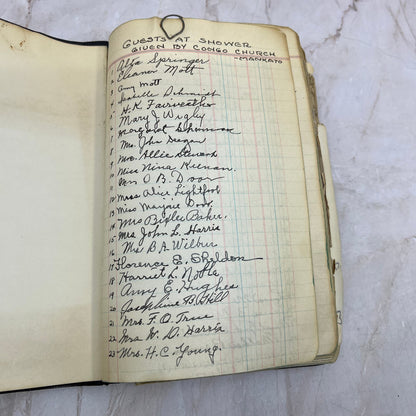 GUESTS AT SHOWER
GIVEN BY CONGO CHURCH
- MANKATO
1. Alta Springer
2. Eleanor Mott
3 Amy Mott
4 Isabelle Schmidt
5 H.K. Fairweather
6 Mary J. Wigby
7 Margaret
8 Mrs. John
9 Mrs. Allie Stewart
10 Miss Nina Keenan
11 Mrs O B. Door
12 Miss Alice Lightfoot
13 Miss Marjorie Door
14 Mrs Baker.
15 Mrs John L. Harris
16 Mrs B A Wilbur
17 Florence E. Sheldon
18 Harriet L. Noble
19 Amy E. Hughes
20 Josephine B. Hill
21 Mrs. F. O. True
22 Mrs W. D. Harris
23 Mrs. H. C. Young.